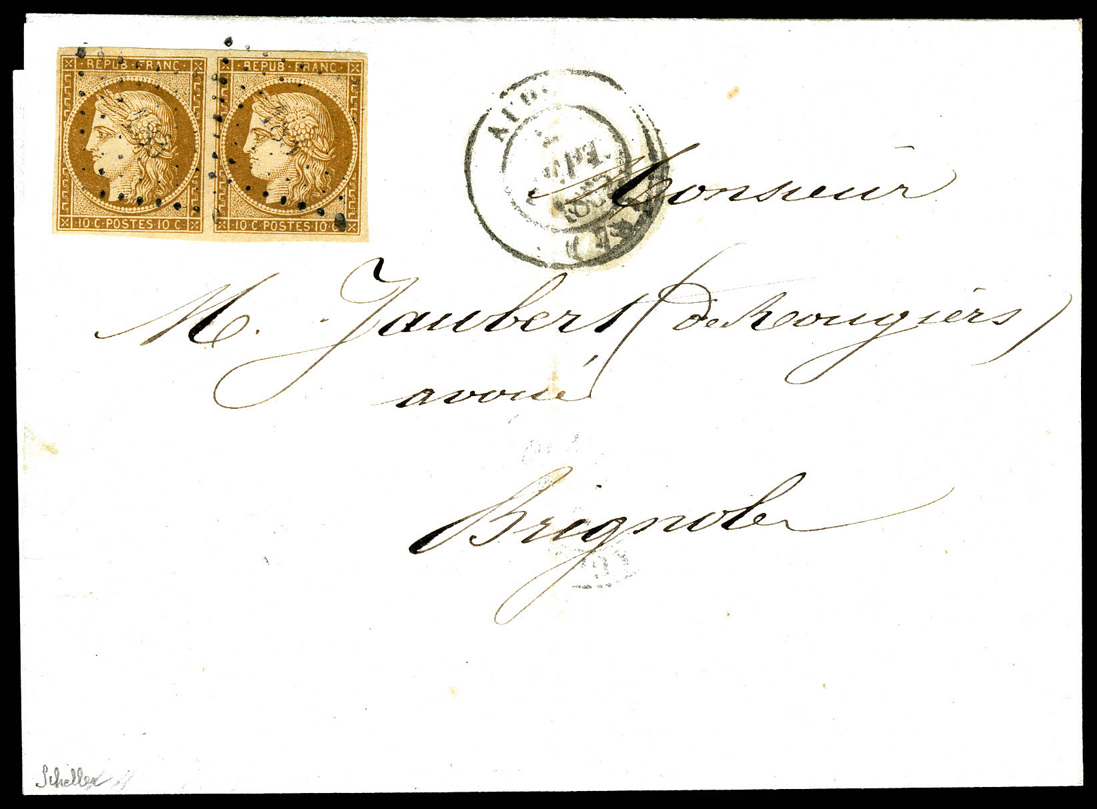 REPUB FRANC REPUB FRANC
10 C POSTES 10 C 10 C POSTES 10 C
SEPT.
Monsieur
M. Jaubert (de Rougiers)
avoué
Brignoles
Scheller